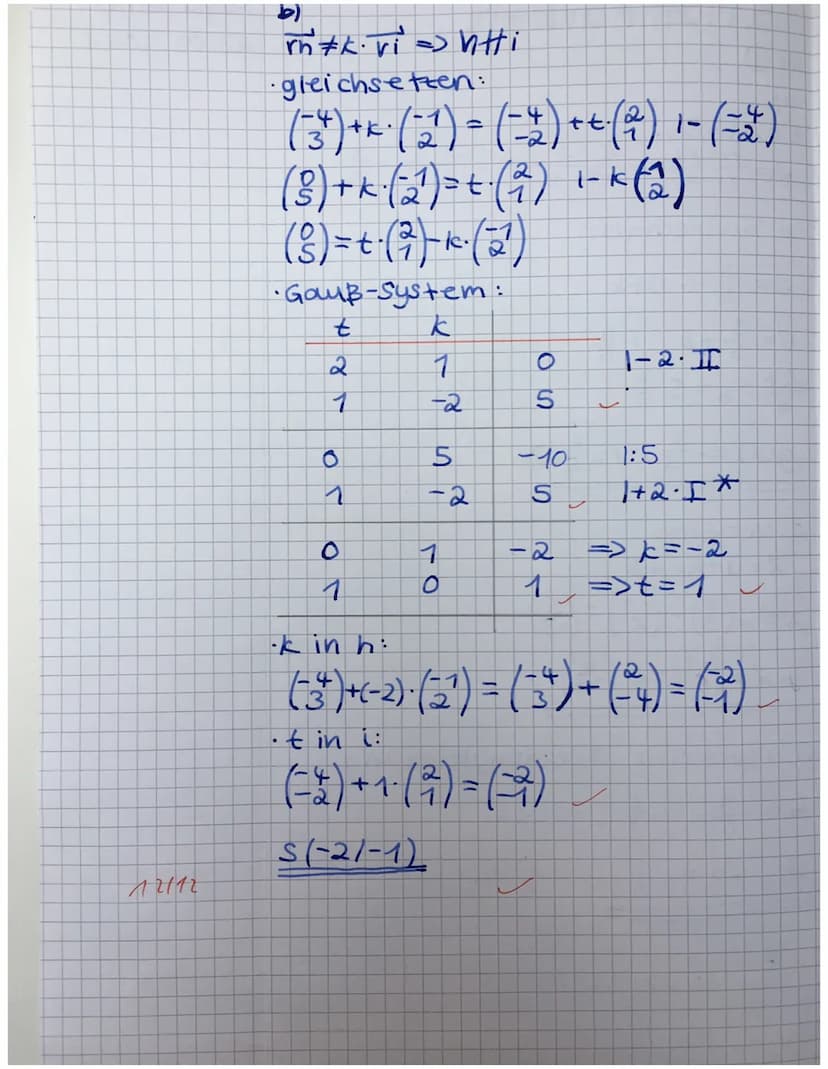 b)
r⃗h ≠ k · r⃗i => h ∦ i
· gleichsetzen:
(-4 3) + k · (-1 2) = (-4 -2) + t · (2 1) | - (-4 -2)
(0 5) + k · (-1 2) = t · (2 1) | - k (-1 2)
(0 5) = t · (2 1) - k · (-1 2)
· Gauß-System:
t k
2 1 0 | - 2 · II
1 -2 5 ✓
0 5 -10 | : 5
1 -2 5 ✓ | + 2 · I*
0 1 -2 => k = -2
1 0 1 ✓ => t = 1 ✓
· k in h:
(-4 3) + (-2) · (-1 2) = (-4 3) + (2 -4) = (-2 -1) ✓
· t in i:
(-4 -2) + 1 · (2 1) = (-2 -1) ✓
S(-2/-1)
12/12 ✓